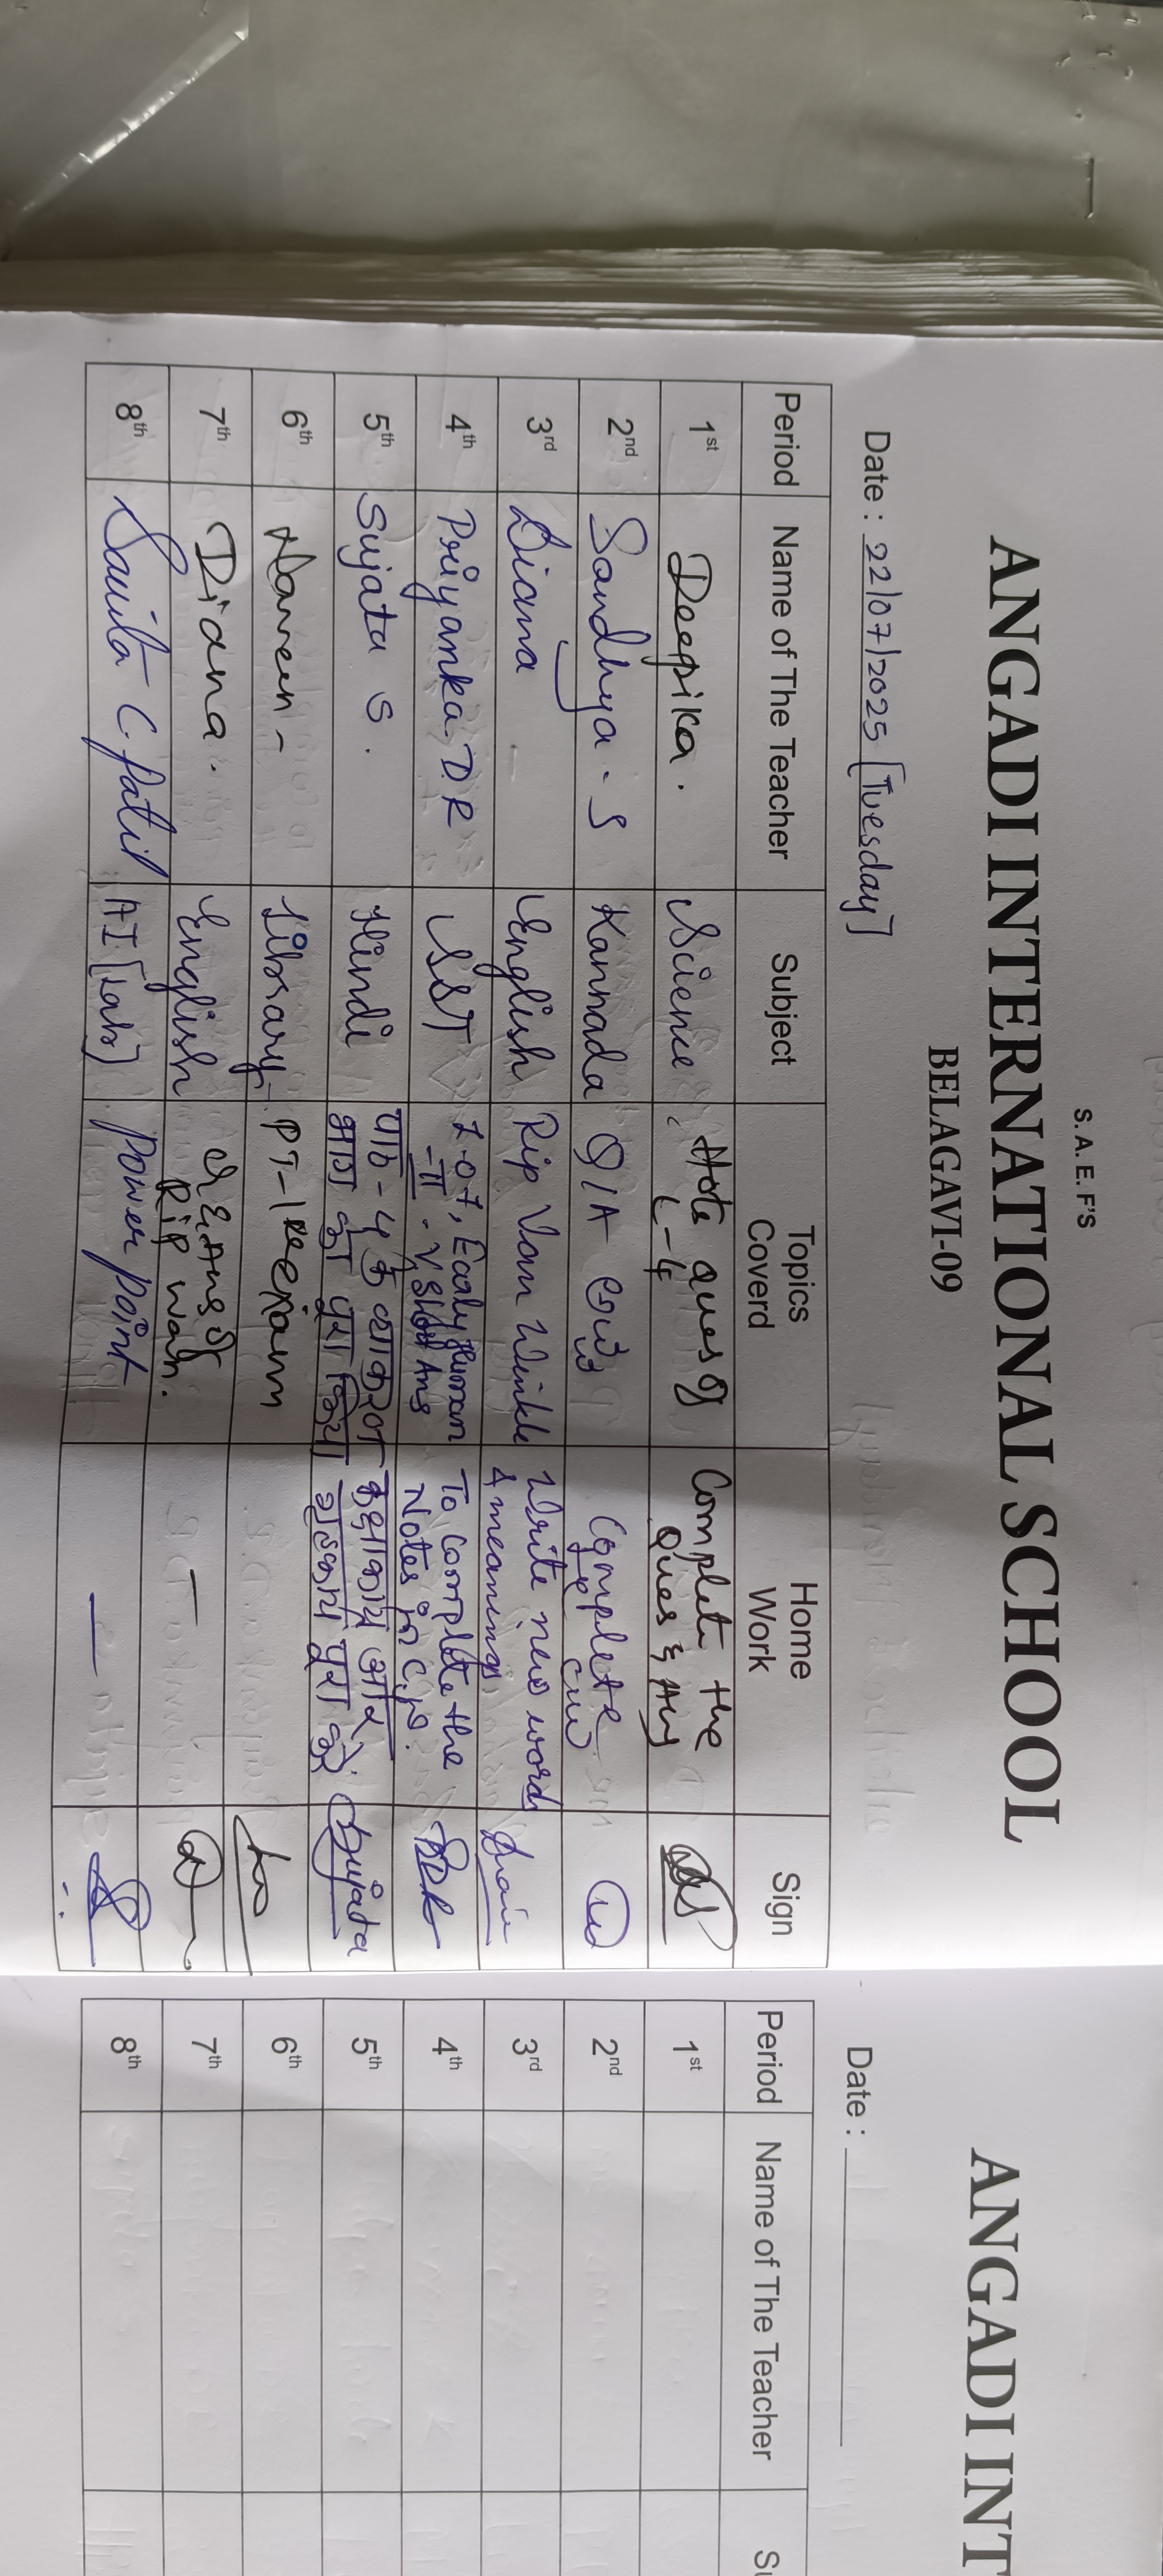 S. A. E. F'S
ANGADI INTERNATIONAL SCHOOL
BELAGAVI-09
Date : 22/07/2025 [Tuesday]
Period Name of The Teacher Subject Topics Coverd Home Work Sign
1st Deepika. Science Hots ques of L-4 Complete the Ques & Ans
2nd Sandhya - S Kannada Q/A Complete CW
3rd Diana English Rip Van Winkle Write new words & meanings
4th Priyanka. D R SST L-07, Early Human -II. V Short Ans To Complete the Notes in C.W.
5th Sujata S. Hindi पाठ - 4 के व्याकरण भाग को पूरा किया कक्षाकार्य और गृहकार्य पूरा करें Sujata
6th Library PT-1 exam
7th Diana. English Q & Ans of Rip Wan. -
8th Savita C. Patil AI [Lab] Power point -
ANGADI INT
Date :
Period Name of The Teacher Su
1st
2nd
3rd
4th
5th
6th
7th
8th